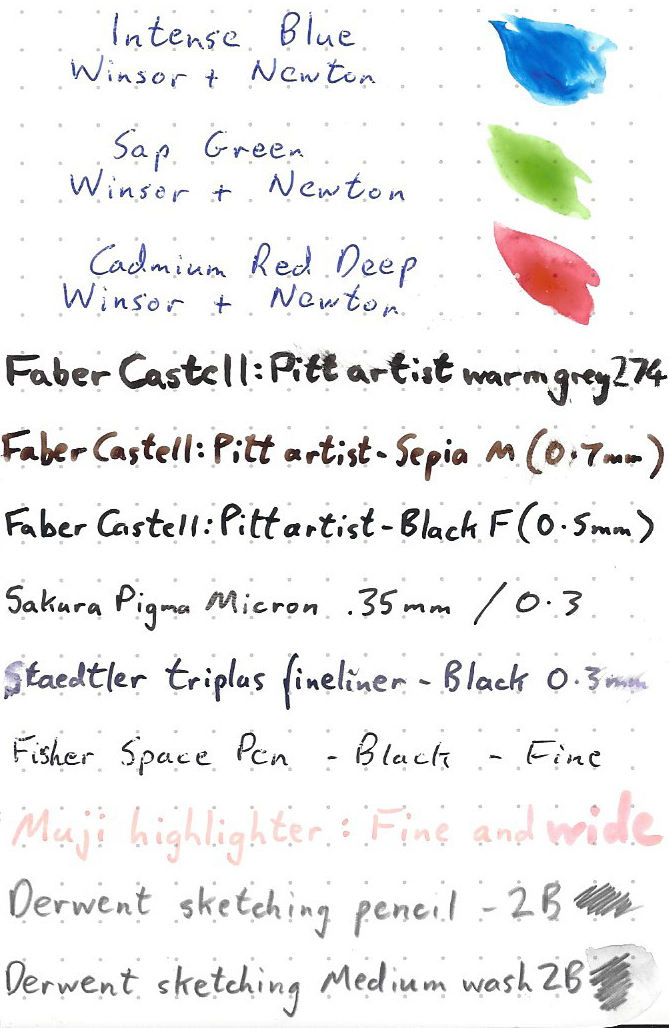 Intense Blue
Winsor + Newton
Sap Green
Winsor + Newton
Cadmium Red Deep
Winsor + Newton
Faber Castell: Pitt artist warm grey 274
Faber Castell: Pitt artist - Sepia M (0.7mm)
Faber Castell: Pitt artist - Black F (0.5mm)
Sakura Pigma Micron .35mm / 0.3
Staedtler triplus fineliner - Black 0.3mm
Fisher Space Pen - Black - Fine
Muji highlighter: Fine and wide
Derwent sketching pencil - 2B
Derwent sketching Medium wash 2B